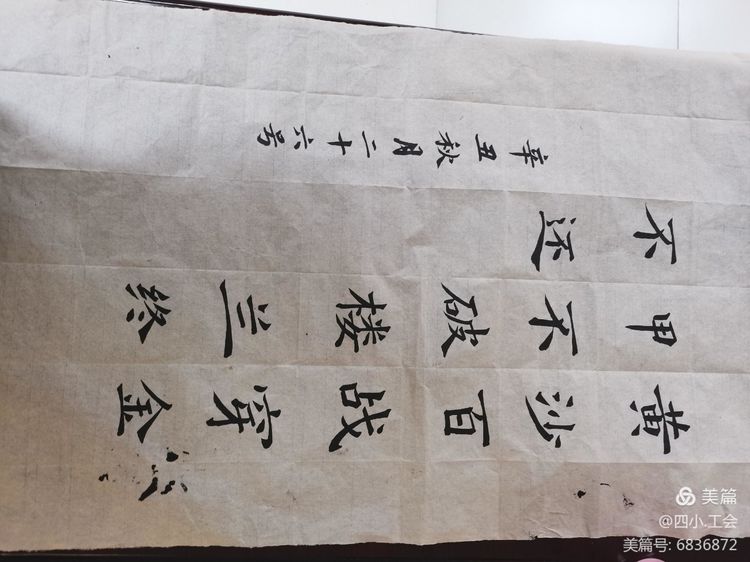 黄沙百战穿金
甲不破楼兰终
不还
辛丑秋月二十六号
美篇
@四小.工会
美篇号: 6836872